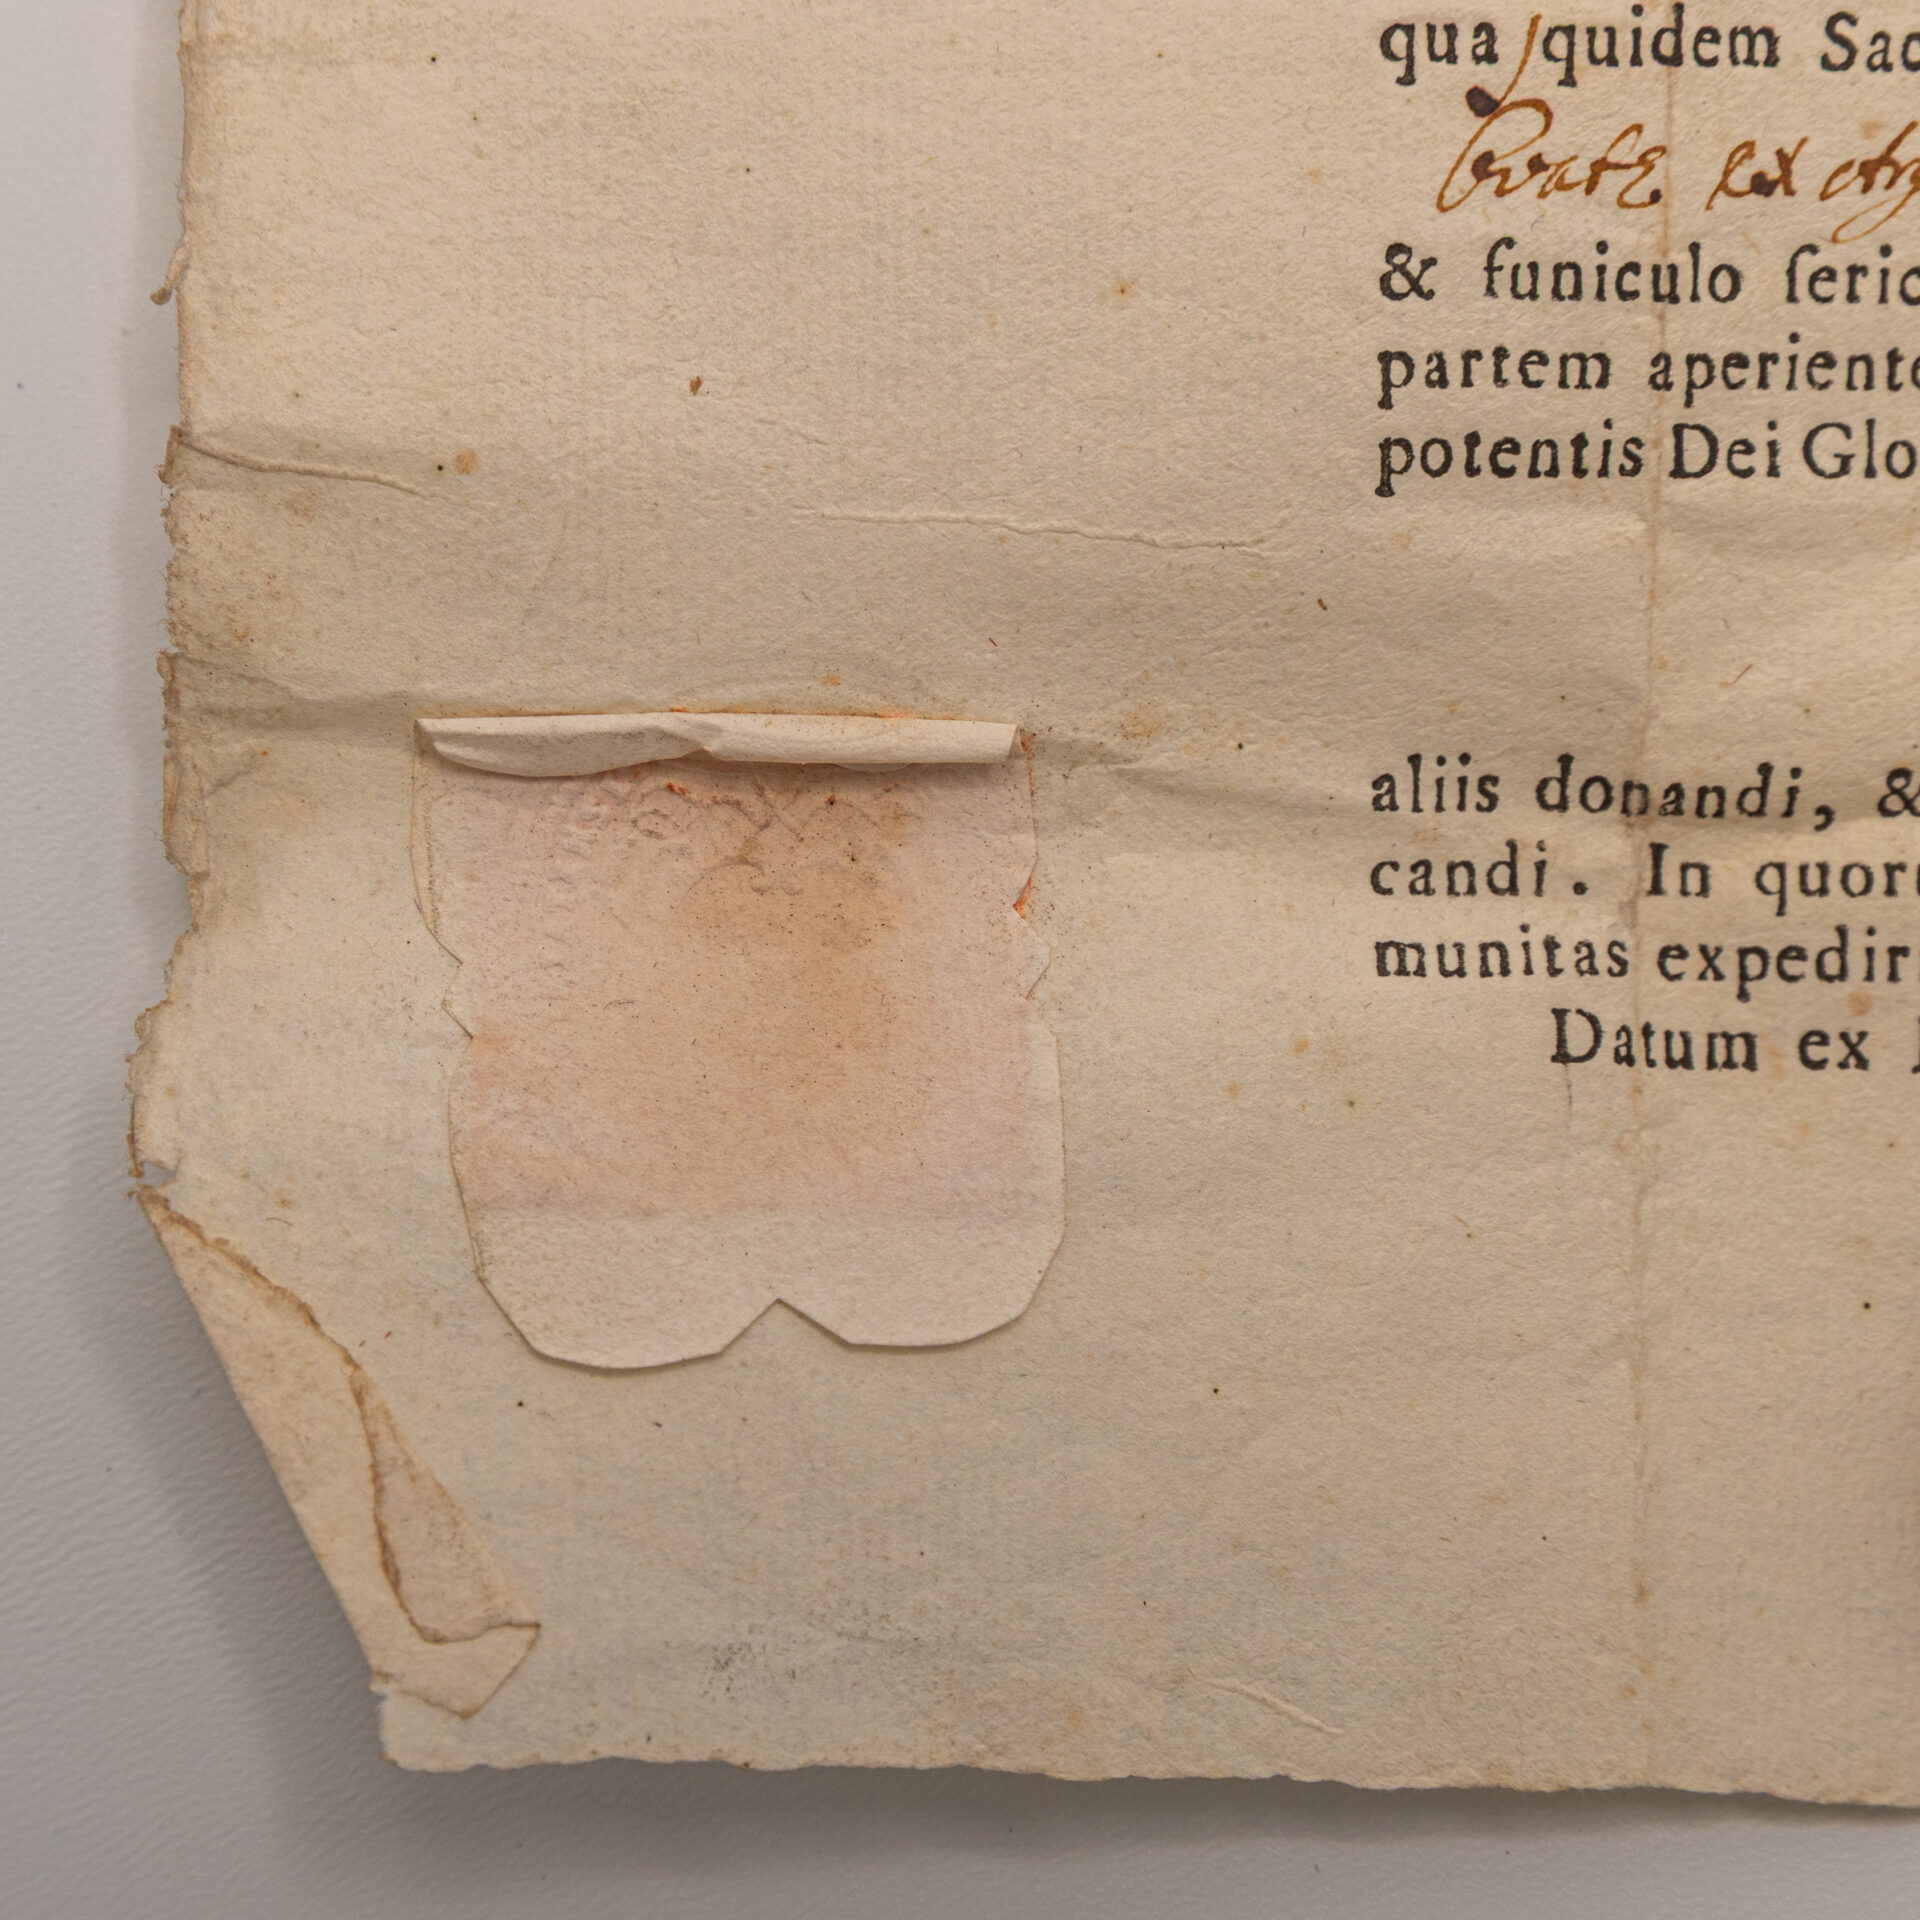 qua quidem Sac
& funiculo ſeric
partem aperient
potentis Dei Glo
aliis donandi, &
candi. In quor
munitas expedir
Datum ex